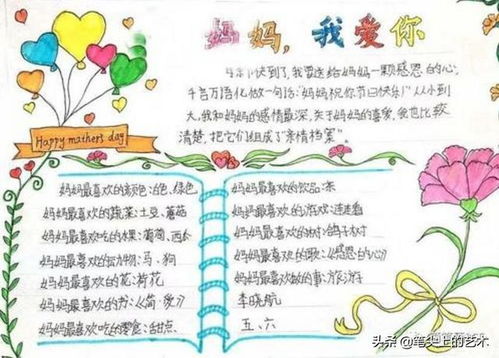 妈妈，我爱你
快到了，我要送给妈妈一颗感恩的心，
千言万语化做一句话：“妈妈祝你节日快乐！”从小到
大，我和妈妈的感情最深，关于妈妈的喜爱，我也比较
清楚，把它们组成了“亲情档案”
Happy mathers day
妈妈最喜欢的颜色：白色、绿色
妈妈最喜欢的蔬菜：土豆、蘑菇
妈妈最喜欢吃的水果：葡萄、西
妈妈最喜欢的动物：马、狗
妈妈最喜欢的花：荷花
妈妈最喜欢的书：《简·爱》
妈妈最喜欢吃的零食：甜点
妈妈最喜欢的饮品：茶
妈妈最喜欢的游戏：连连看
妈妈最喜欢的树：鸽子树
妈妈最喜欢的歌：《感恩的心》
妈妈最喜欢做的事：旅游
李晓航
五、六
头条 @笔尖上的艺术